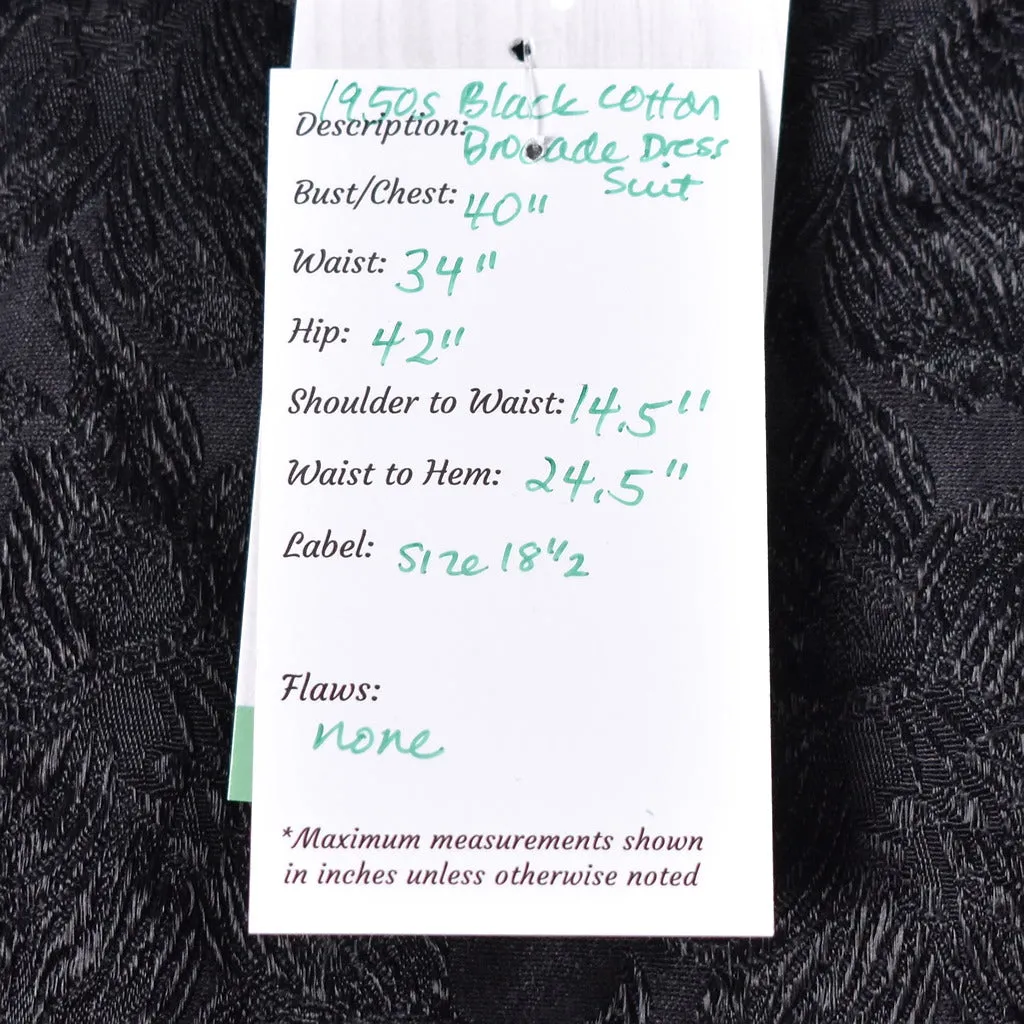 1950s Black Cotton
Description:
Brocade Dress
Suit
Bust/Chest: 40"
Waist: 34"
Hip: 42"
Shoulder to Waist: 14.5"
Waist to Hem: 24.5"
Label: Size 18 1/2
Flaws:
none
*Maximum measurements shown
in inches unless otherwise noted